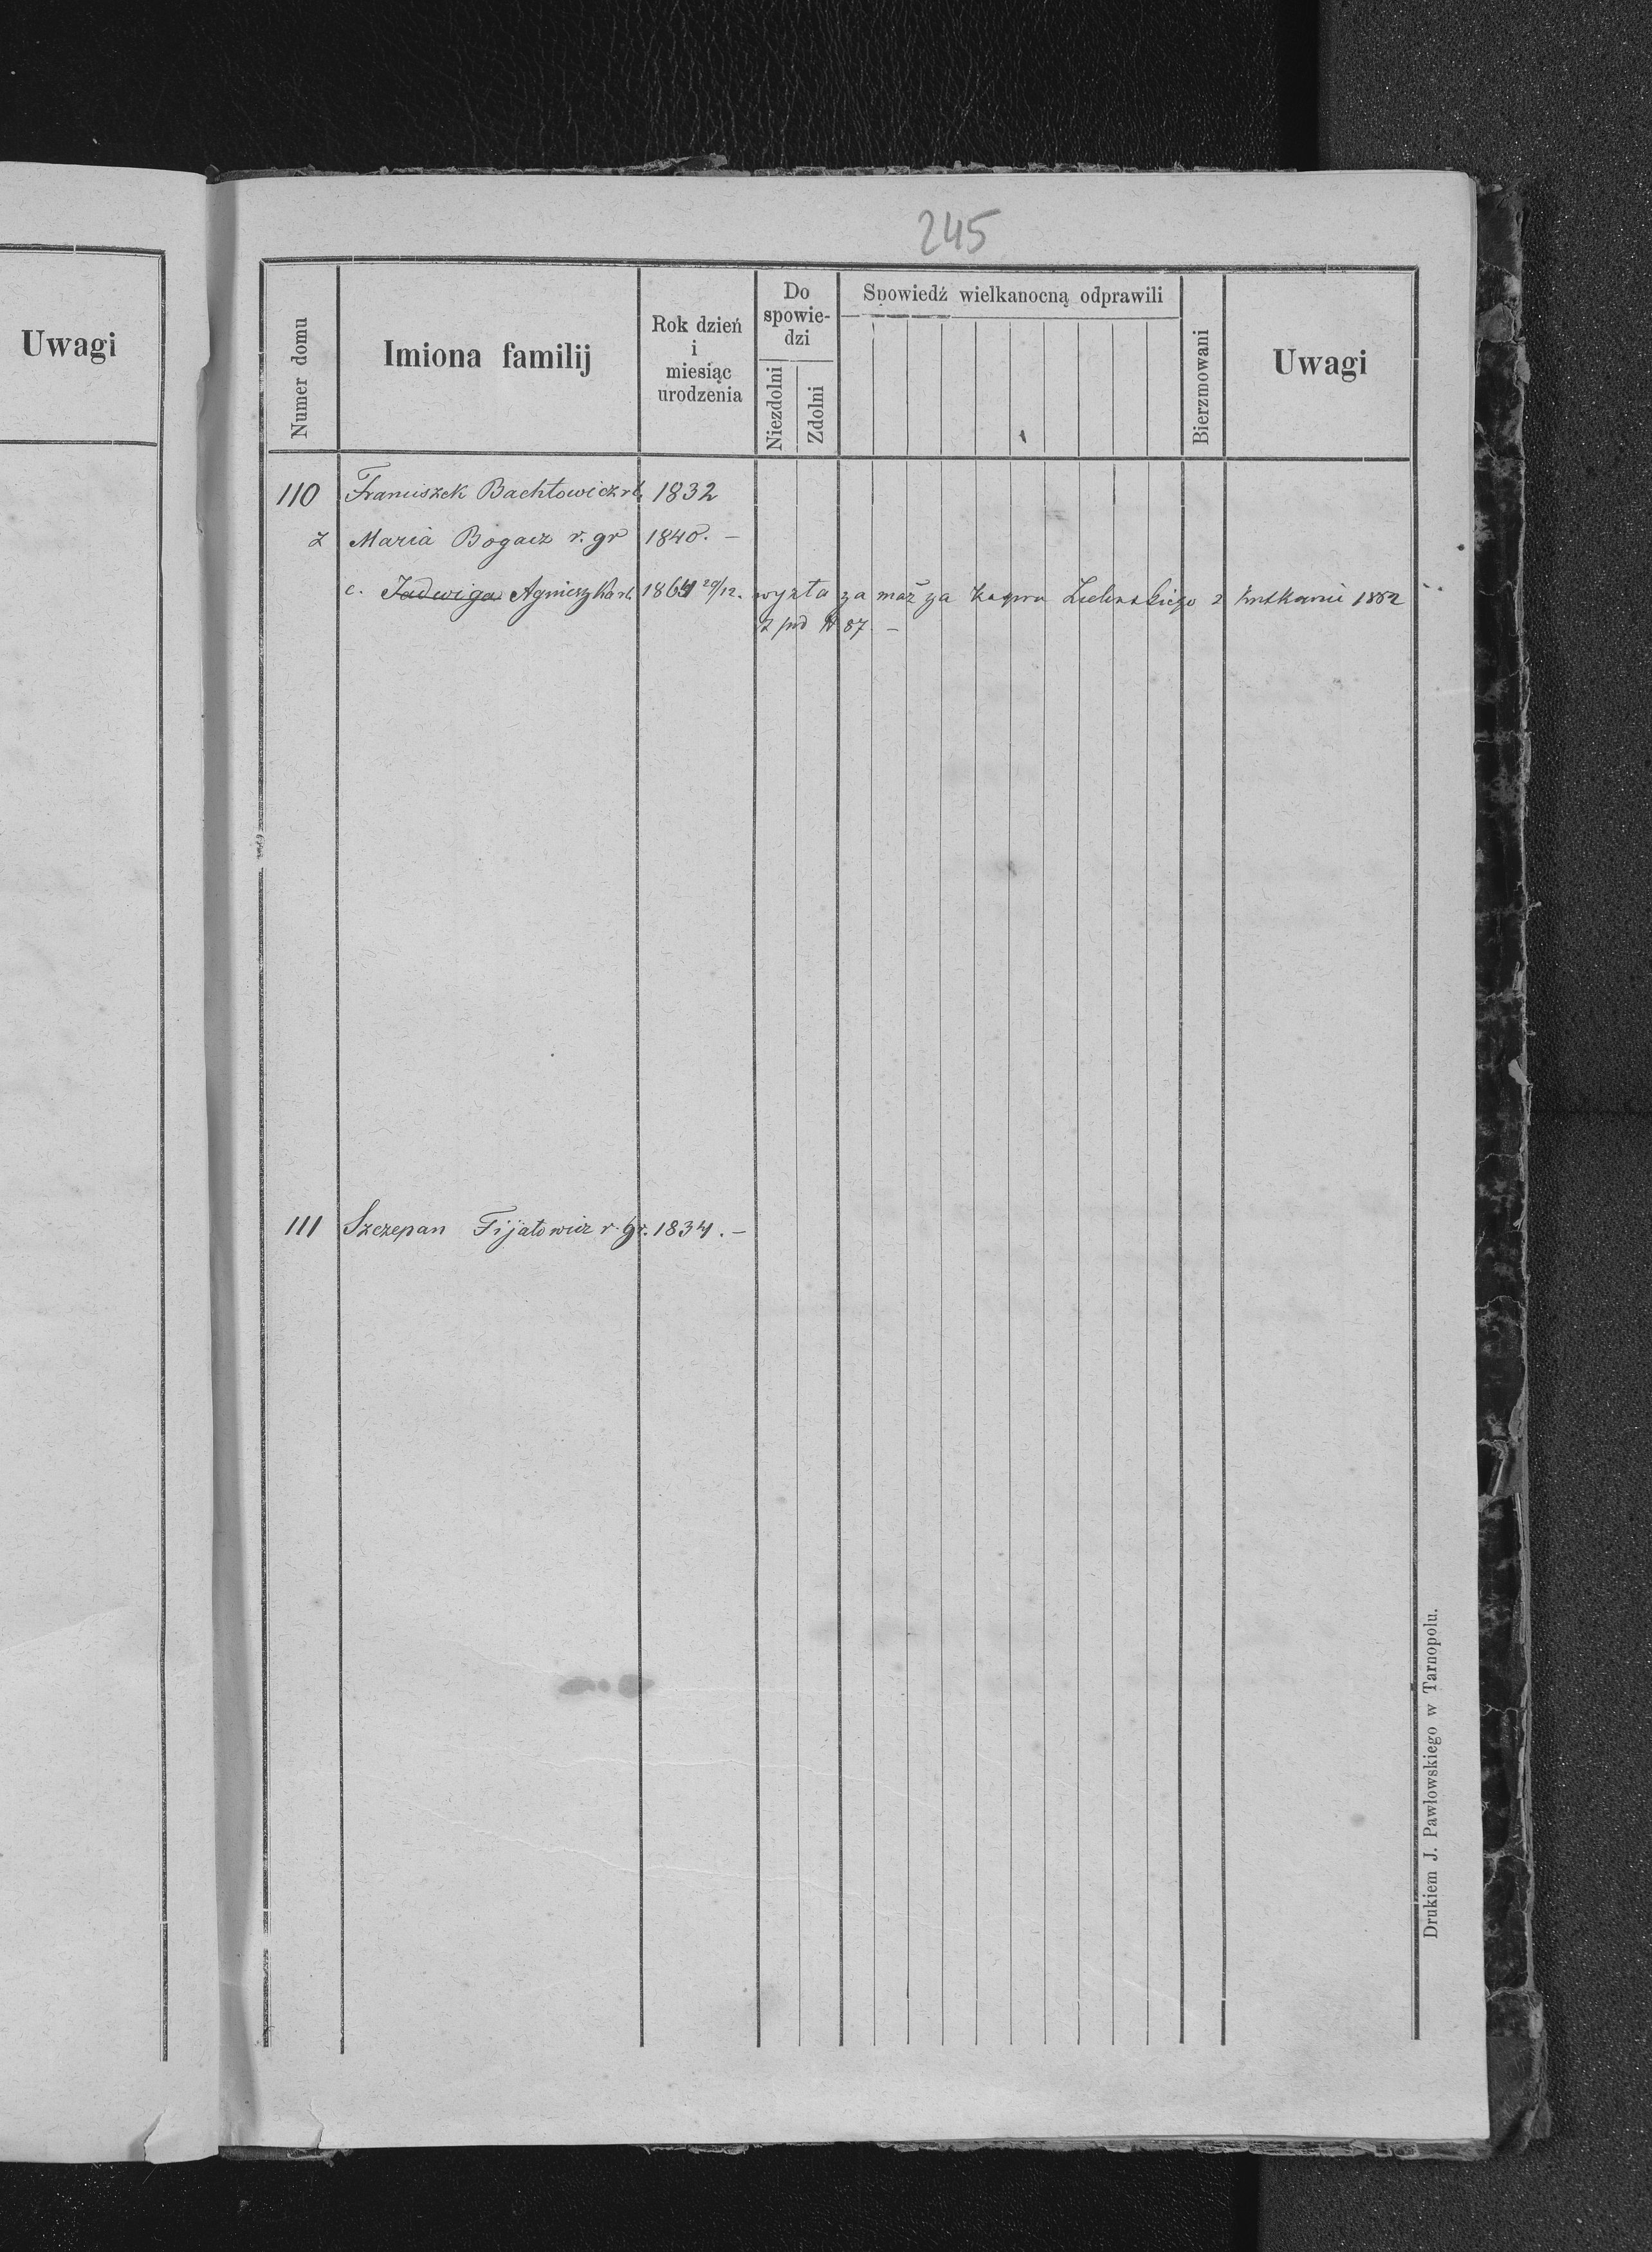 245
Uwagi
Numer domu
Imiona familij
Rok dzień
i
miesiąc
urodzenia
Do
spowie-
dzi
Niezdolni
Zdolni
Spowiedź wielkanocną odprawili
Bierzmowani
Uwagi
110 Franciszek Bachtowicz rł. 1832
ż Maria Bogacz r. gr 1840. -
c. Jadwiga Agnieszka rł. 1864 20/12. wyszła za mąż za Zielinskiego z 1882
z pod N 87. -
111 Szczepan Fijałowicz r. gr. 1834. -
Drukiem J. Pawłowskiego w Tarnopolu.